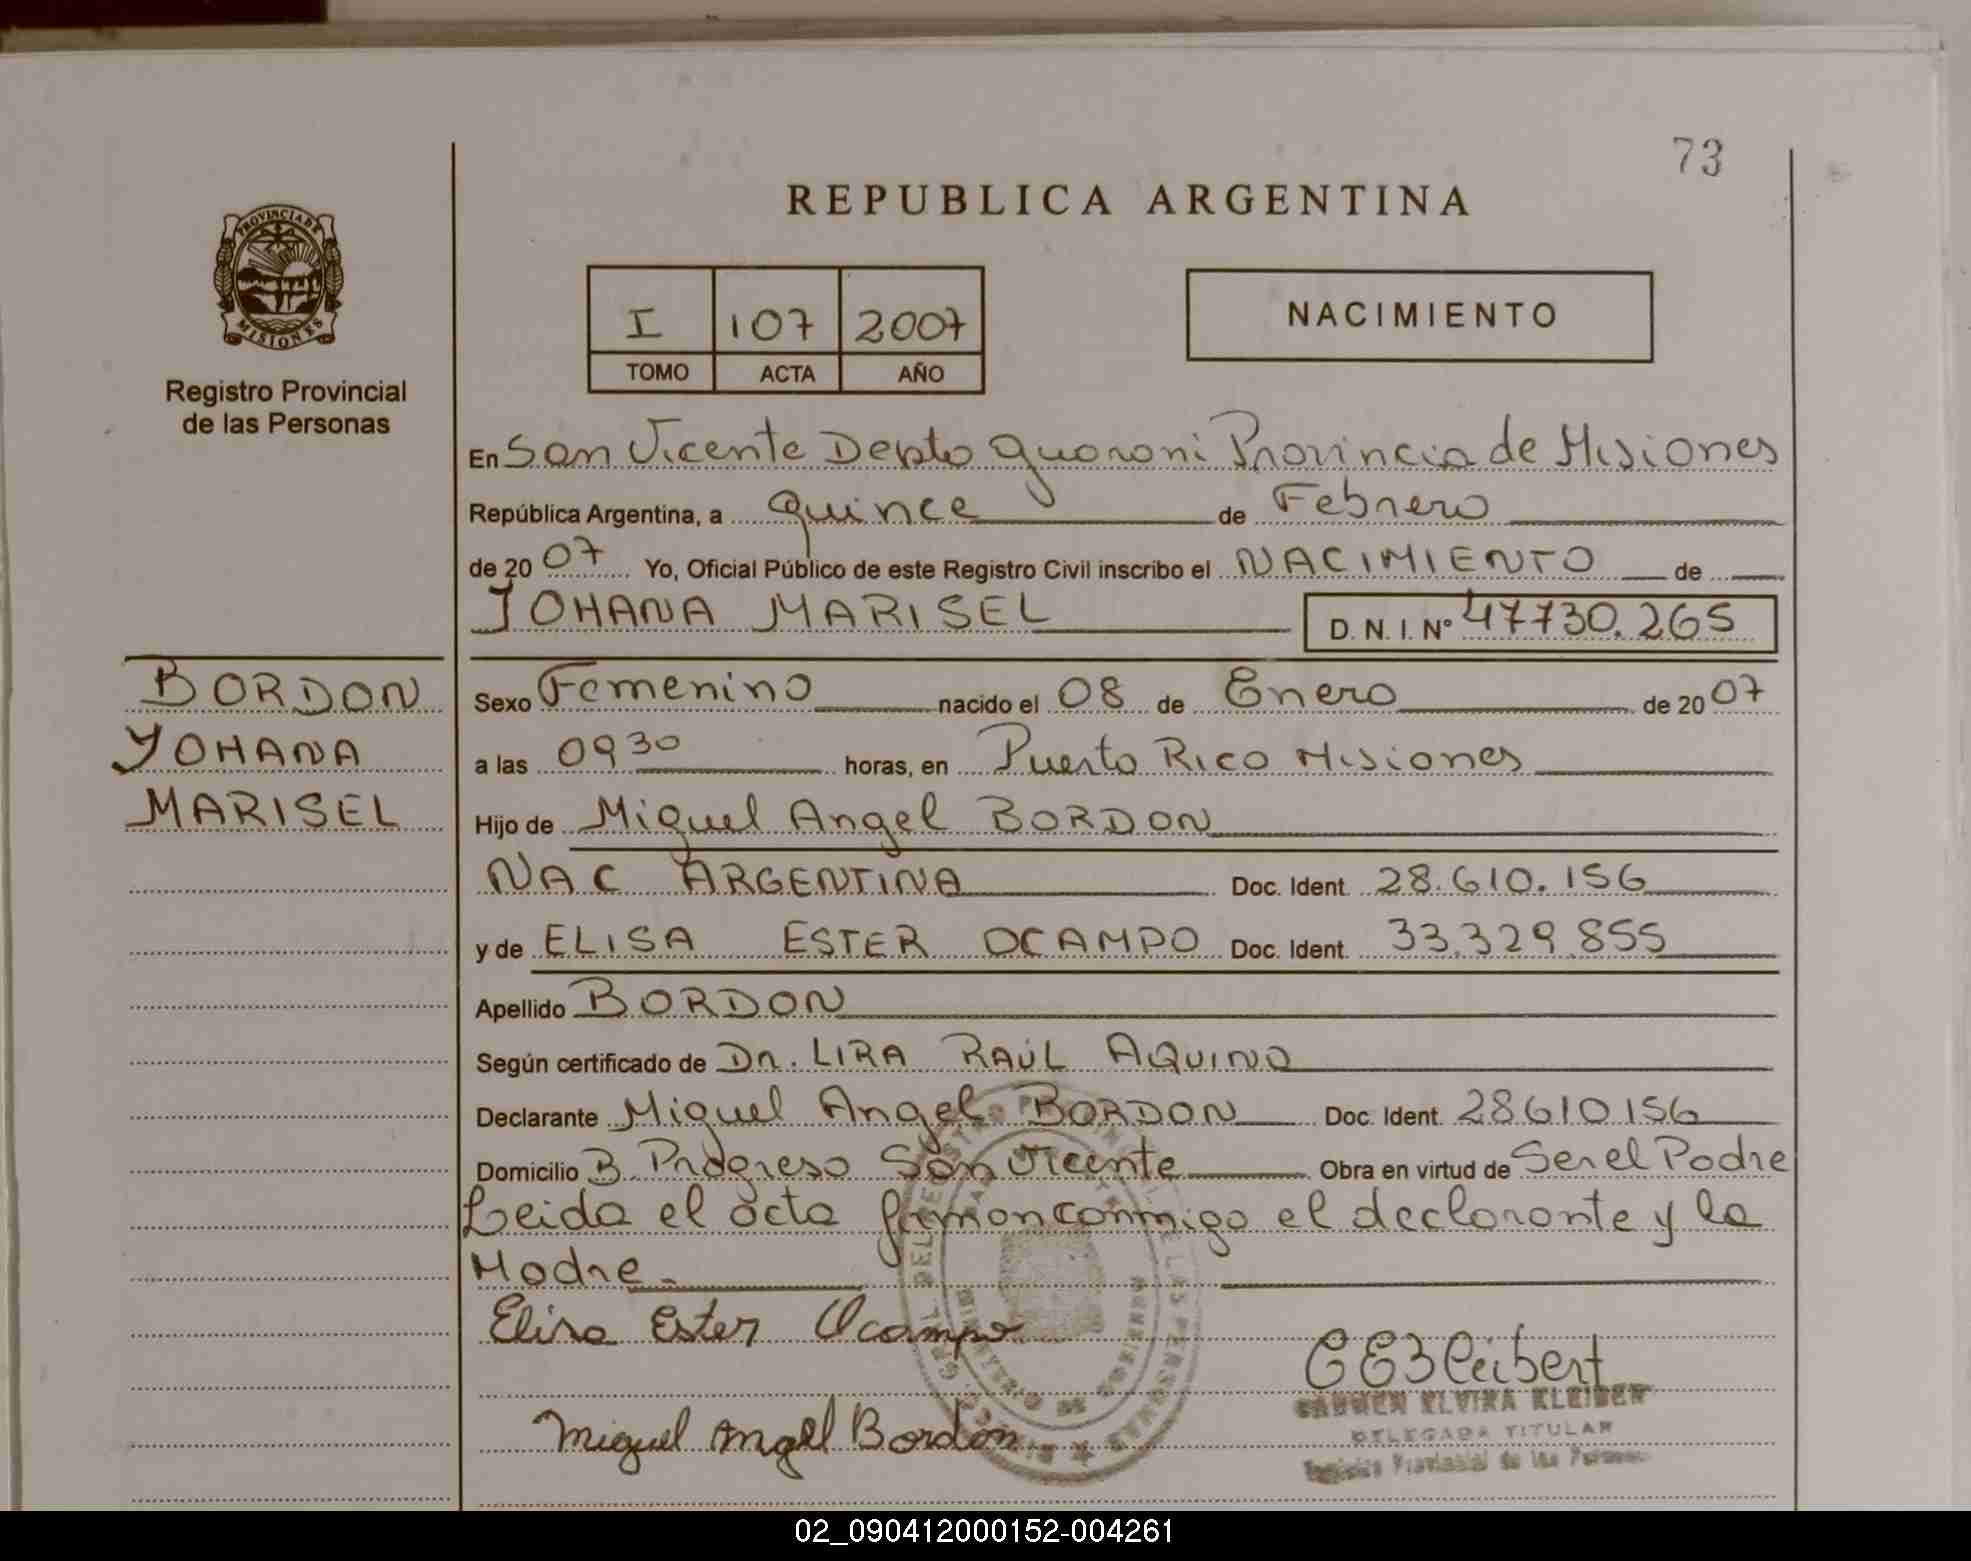 73
REPUBLICA ARGENTINA
PROVINCIA DE
MISIONES
Registro Provincial
de las Personas
I 107 2007
TOMO ACTA AÑO
NACIMIENTO
En San Vicente Depto Guarani Provincia de Misiones
República Argentina, a Quince de Febrero
de 2007 Yo, Oficial Público de este Registro Civil inscribo el NACIMIENTO de
YOHANA MARISEL D. N. I. N° 47730.265
BORDON
YOHANA
MARISEL
Sexo Femenino nacido el 08 de Enero de 2007
a las 0930 horas, en Puerto Rico Misiones
Hijo de Miguel Angel BORDON
NAC ARGENTINA Doc. Ident. 28.610.156
y de ELISA ESTER OCAMPO Doc. Ident. 33.329.855
Apellido BORDON
Según certificado de Dr. LIRA RAÚL AQUINO
Declarante Miguel Angel BORDON Doc. Ident. 28610156
Domicilio B. Progreso San Vicente Obra en virtud de Ser el Padre
Leida el acta firman conmigo el declarante y la
Madre.
Elisa Ester Ocampo
Miguel Angel Bordón
CARMEN ELVIRA KLEIBER
DELEGADA TITULAR
Provincial de las Personas
02_090412000152-004261